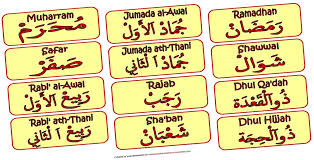 Muharram
مُحَرَمْ
Safar
صَفَرْ
Rabi' al-Awal
رَبِيعُ الأَوَلْ
Rabi' ath-Thani
رَبِيعُ الثَانِي
Jumada al-Awal
جُمَادُ الأَوَلْ
Jumada ath-Thani
جُمَادُ الثَانِي
Rajab
رَجَبْ
Sha'ban
شَعْبَانْ
Ramadhan
رَمَضَانْ
Shawwal
شَوَالْ
Dhul Qa'dah
ذُوالْقَعْدَة
Dhul Hijjah
ذُوالْحِجَة